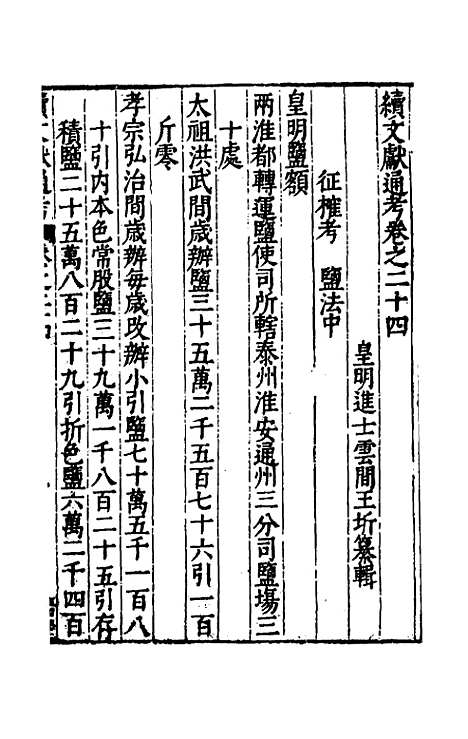 續文獻通考卷之二十四
皇明進士雲間王圻纂輯
征榷考　鹽法中
皇明鹽額
兩淮都轉運鹽使司所轄泰州淮安通州三分司鹽塲三
十處
太祖洪武間歲辦鹽三十五萬二千五百七十六引一百
斤零
孝宗弘治間歲辦每歲改辦小引鹽七十萬五千一百八
十引内本色常股鹽三十九萬一千八百二十五引存
積鹽二十五萬八百二十九引折色鹽六萬二千四百